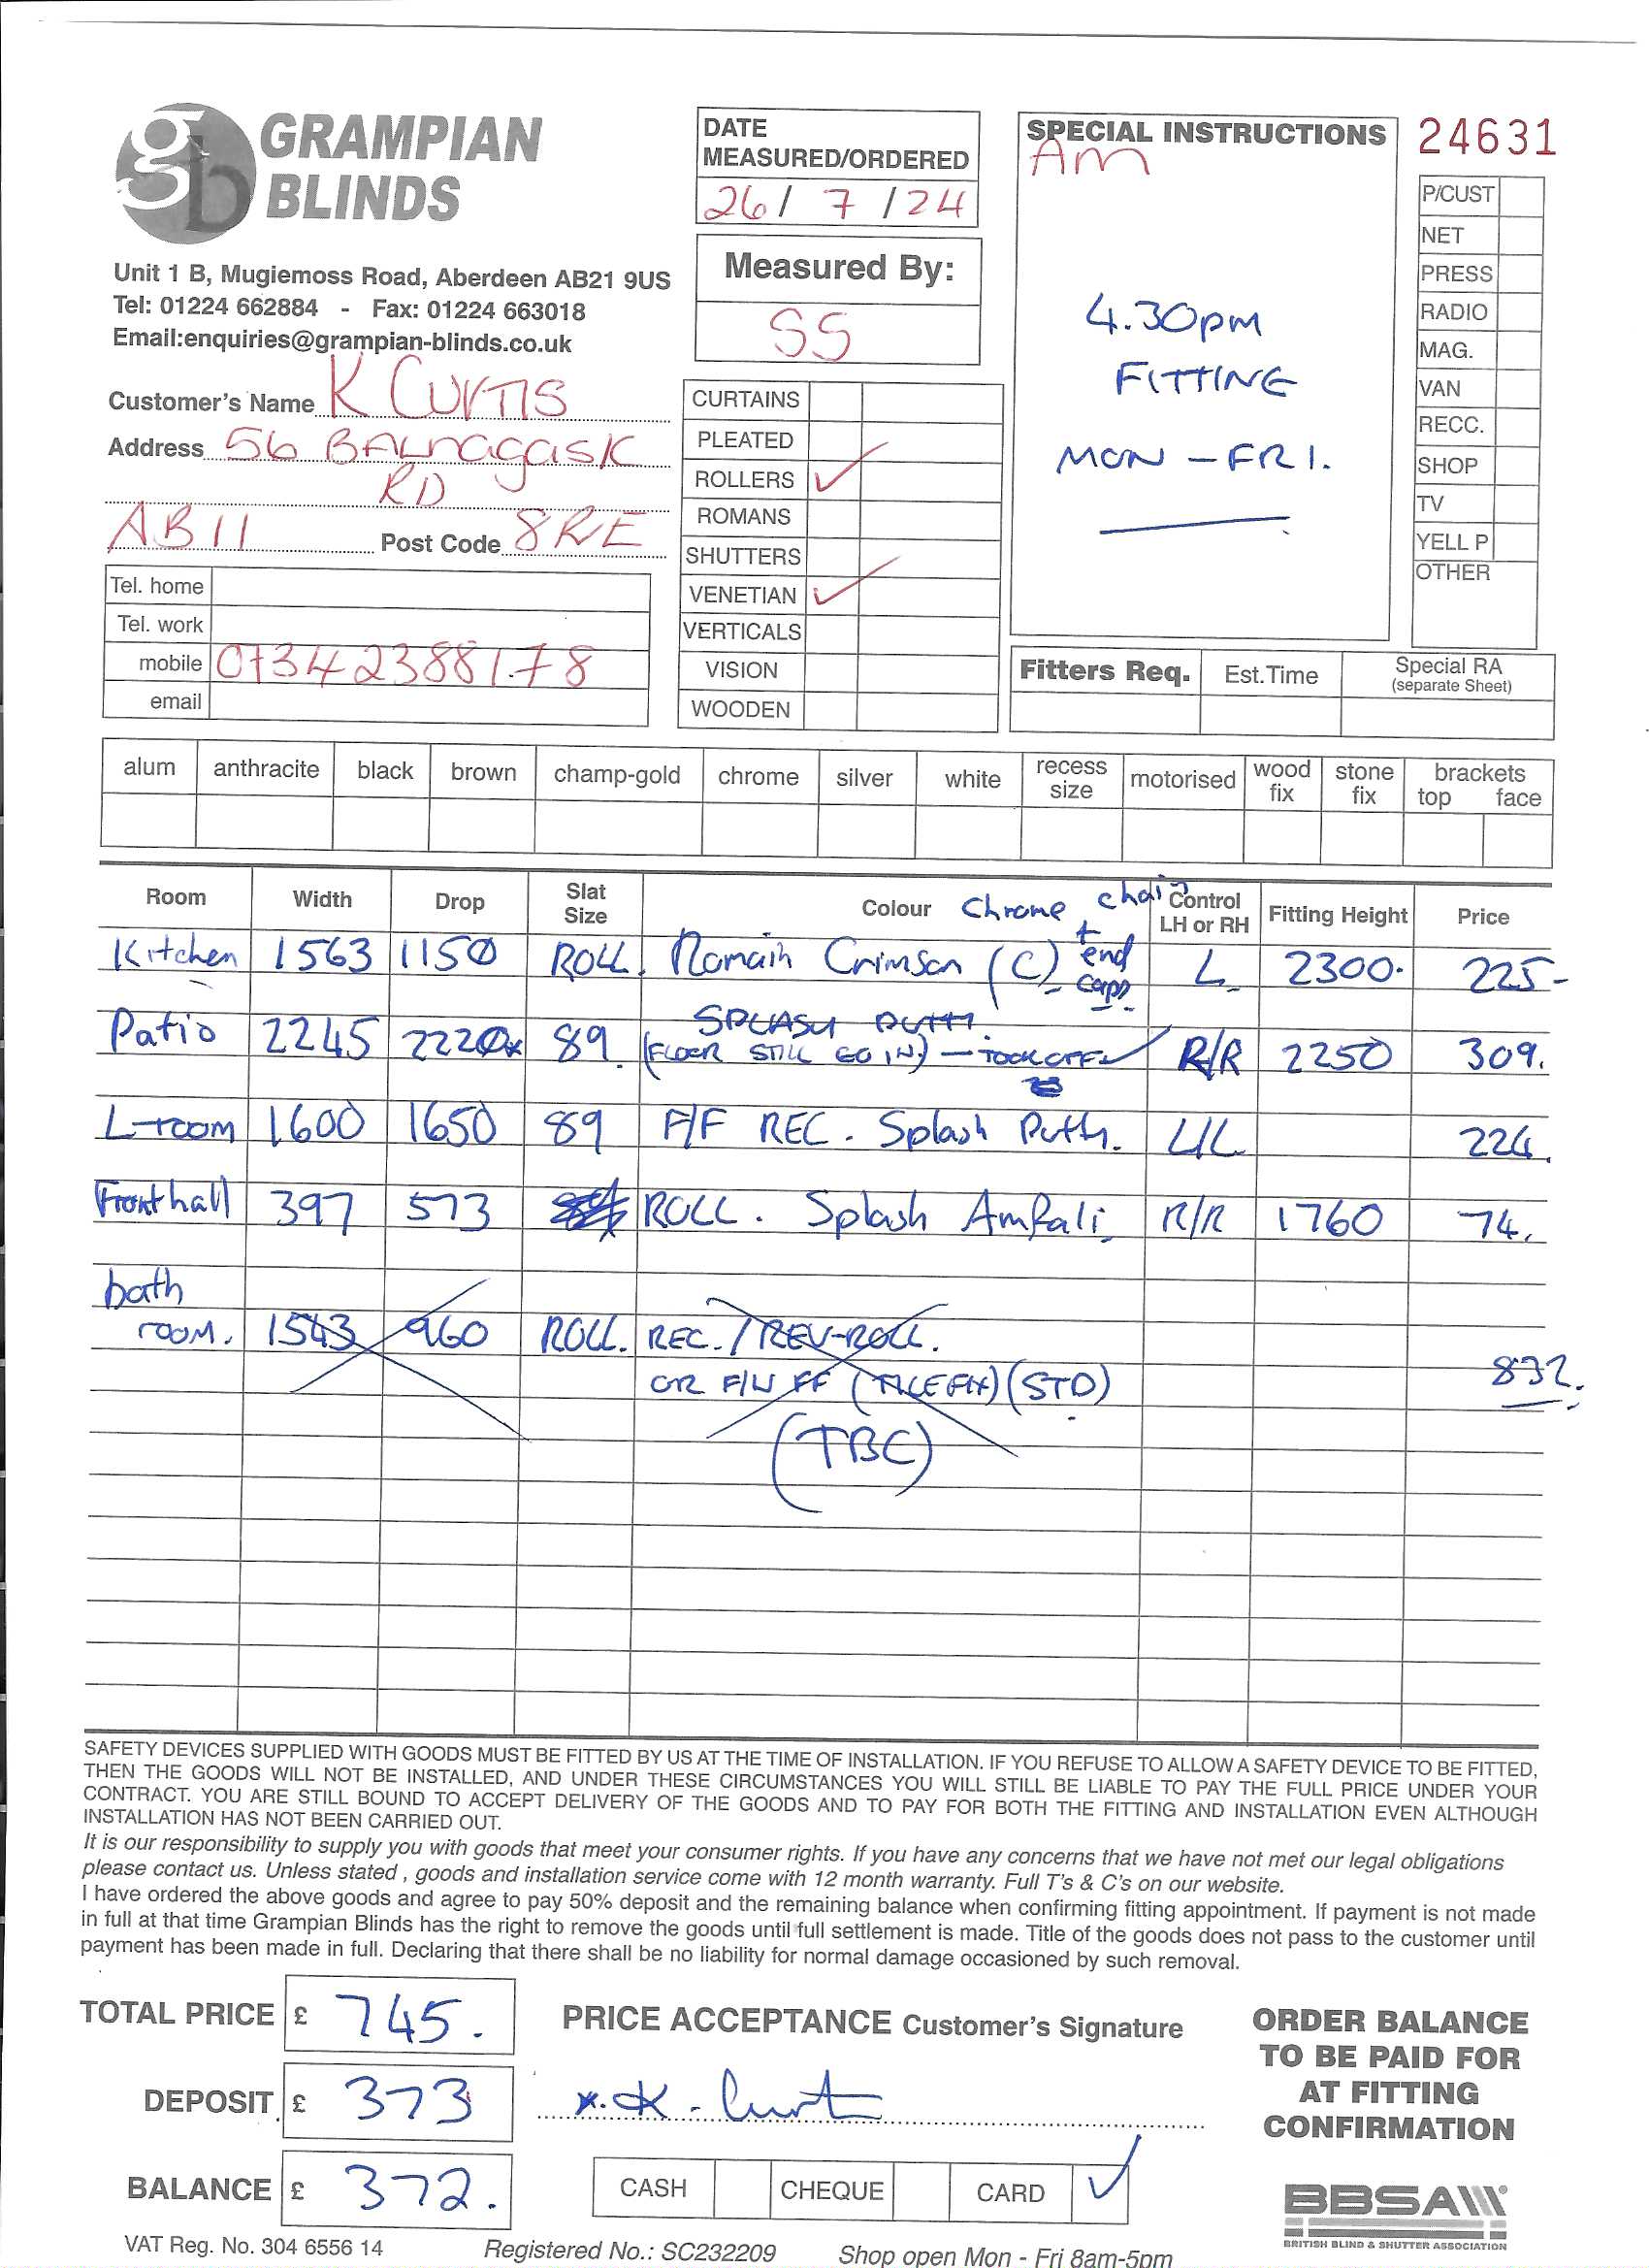 GRAMPIAN
BLINDS
Unit 1 B, Mugiemoss Road, Aberdeen AB21 9US
Tel: 01224 662884 - Fax: 01224 663018
Email:enquiries@grampian-blinds.co.uk
DATE
MEASURED/ORDERED
26/ 7 /24
Measured By:
SS
SPECIAL INSTRUCTIONS
Am
4.30pm
FITTING
MON - FRI.
24631
P/CUST
NET
PRESS
RADIO
MAG.
VAN
RECC.
SHOP
TV
YELL P
OTHER
Customer's Name K CURTIS
Address 56 BALNAGASK
RD
AB11 Post Code 8RE
Tel. home
Tel. work
mobile 07342388178
email
CURTAINS
PLEATED
ROLLERS ✓
ROMANS
SHUTTERS
VENETIAN ✓
VERTICALS
VISION
WOODEN
Fitters Req. Est.Time Special RA
(separate Sheet)
alum anthracite black brown champ-gold chrome silver white recess size motorised wood fix stone fix brackets top face
Room Width Drop Slat Size Colour Chrome chain Control LH or RH Fitting Height Price
Kitchen 1563 1150 ROLL. Romain Crimson (C) + end caps L 2300. 225-
Patio 2245 2220 89 SPLASH PUTTY. (FLOOR STILL GO IN) - TOOK OFF ✓ R/R 2250 309.
L-room 1600 1650 89 F/F REC. Splash Putty. L/L 224.
Front hall 397 573 ROLL. Splash Amfali R/R 1760 74.
bath
room. 1543 960 ROLL. REC. / REV-ROLL.
OR F/W FF (TILE FIX) (STD) 832.
(TBC)
SAFETY DEVICES SUPPLIED WITH GOODS MUST BE FITTED BY US AT THE TIME OF INSTALLATION. IF YOU REFUSE TO ALLOW A SAFETY DEVICE TO BE FITTED,
THEN THE GOODS WILL NOT BE INSTALLED, AND UNDER THESE CIRCUMSTANCES YOU WILL STILL BE LIABLE TO PAY THE FULL PRICE UNDER YOUR
CONTRACT. YOU ARE STILL BOUND TO ACCEPT DELIVERY OF THE GOODS AND TO PAY FOR BOTH THE FITTING AND INSTALLATION EVEN ALTHOUGH
INSTALLATION HAS NOT BEEN CARRIED OUT.
It is our responsibility to supply you with goods that meet your consumer rights. If you have any concerns that we have not met our legal obligations
please contact us. Unless stated , goods and installation service come with 12 month warranty. Full T's & C's on our website.
I have ordered the above goods and agree to pay 50% deposit and the remaining balance when confirming fitting appointment. If payment is not made
in full at that time Grampian Blinds has the right to remove the goods until full settlement is made. Title of the goods does not pass to the customer until
payment has been made in full. Declaring that there shall be no liability for normal damage occasioned by such removal.
TOTAL PRICE £ 745.
DEPOSIT £ 373
BALANCE £ 372.
PRICE ACCEPTANCE Customer's Signature
x. K. Curt
CASH CHEQUE CARD ✓
ORDER BALANCE
TO BE PAID FOR
AT FITTING
CONFIRMATION
BBSA
BRITISH BLIND & SHUTTER ASSOCIATION
VAT Reg. No. 304 6556 14 Registered No.: SC232209 Shop open Mon - Fri 8am-5pm